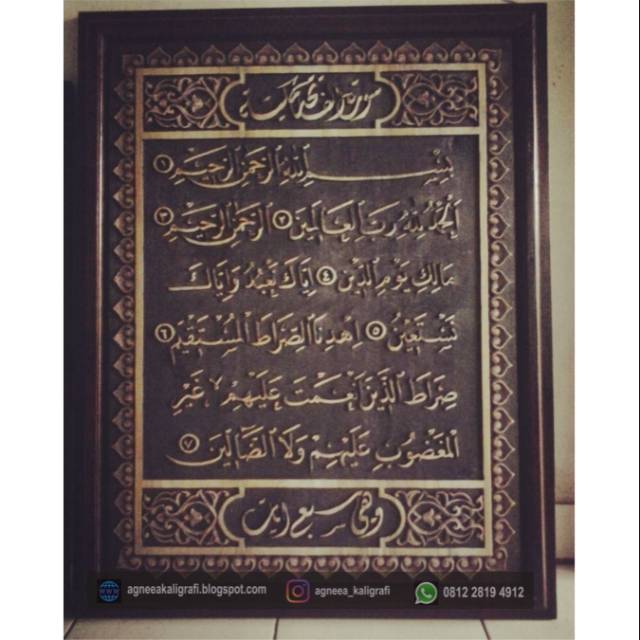 سورة الفاتحة مكية
بِسْمِ اللَّهِ الرَّحْمَٰنِ الرَّحِيمِ ١
الْحَمْدُ لِلَّهِ رَبِّ الْعَالَمِينَ ٢ الرَّحْمَٰنِ الرَّحِيمِ ٣
مَالِكِ يَوْمِ الدِّينِ ٤ إِيَّاكَ نَعْبُدُ وَإِيَّاكَ
نَسْتَعِينُ ٥ اِهْدِنَا الصِّرَاطَ الْمُسْتَقِيمَ ٦
صِرَاطَ الَّذِينَ أَنْعَمْتَ عَلَيْهِمْ غَيْرِ
الْمَغْضُوبِ عَلَيْهِمْ وَلَا الضَّالِّينَ ٧
وهي سبع آيات
agneeakaligrafi.blogspot.com agneea_kaligrafi 0812 2819 4912